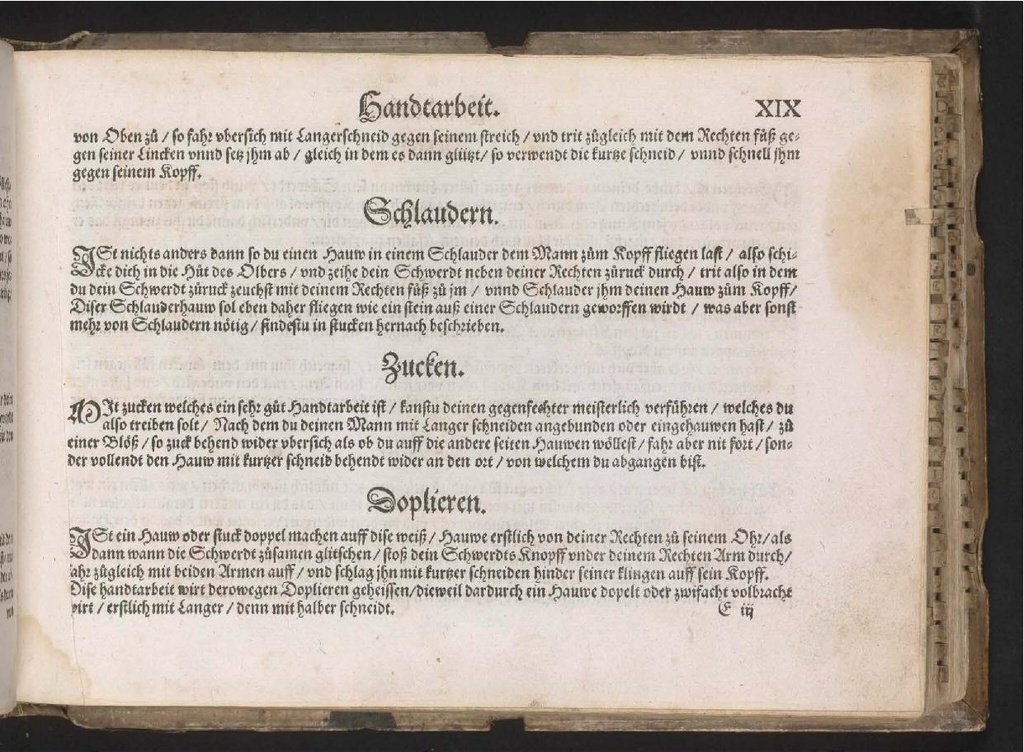 Handtarbeit. XIX
von Oben zů / so fahr vbersich mit Langerschneid gegen seinem streich / vnd trit zůgleich mit dem Rechten fůß ge-
gen seiner Lincken vnnd setz jhm ab / gleich in dem es dann glützt / so verwendt die kurtze schneid / vnnd schnell jhm
gegen seinem Kopff.
Schlaudern.
ISt nichts anders dann so du einen Hauw in einem Schlauder dem Mann zům Kopff fliegen last / also schi-
cke dich in die Hůt des Olbers / vnd zeihe dein Schwerdt neben deiner Rechten zůruck durch / trit also in dem
du dein Schwerdt zůruck zeuchst mit deinem Rechten fůß zů jm / vnnd Schlauder jhm deinen Hauw zům Kopff /
Diser Schlauderhauw sol eben daher fliegen wie ein stein auß einer Schlaudern geworffen wirdt / was aber sonst
mehr von Schlaudern nötig / findestu in stucken hernach beschrieben.
Zucken.
MIt zucken welches ein sehr gůt Handtarbeit ist / kanstu deinen gegenfechter meisterlich verführen / welches du
also treiben solt / Nach dem du deinen Mann mit Langer schneiden angebunden oder eingehauwen hast / zů
einer Blöß / so zuck behend wider vbersich als ob du auff die andere seiten Hauwen wöllest / fahr aber nit fort / son-
der vollendt den Hauw mit kurtzer schneid behendt wider an den ort / von welchem du abgangen bist.
Doplieren.
ISt ein Hauw oder stuck doppel machen auff dise weiß / Hauwe erstlich von deiner Rechten zů seinem Ohr / als
dann wann die Schwerdt zůsamen glitschen / stoß dein Schwerdts Knopff vnder deinem Rechten Arm durch /
fahr zůgleich mit beiden Armen auff / vnd schlag jhn mit kurtzer schneiden hinder seiner klingen auff sein Kopff.
Dise handtarbeit wirt derowegen Doplieren geheissen / dieweil dardurch ein Hauwe dopelt oder zwifacht volbracht
wirt / erstlich mit Langer / denn mit halber schneidt. E iij